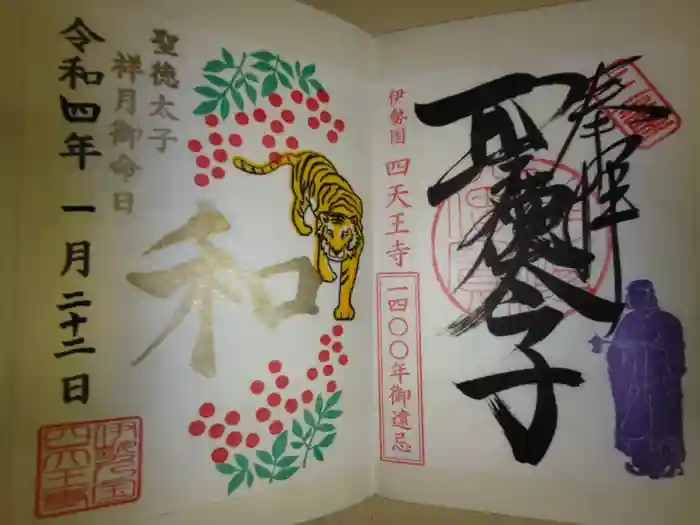 奉拝
聖徳太子
伊勢国 四天王寺
一四〇〇年御遠忌
和
聖徳太子
祥月御命日
令和四年一月二十二日